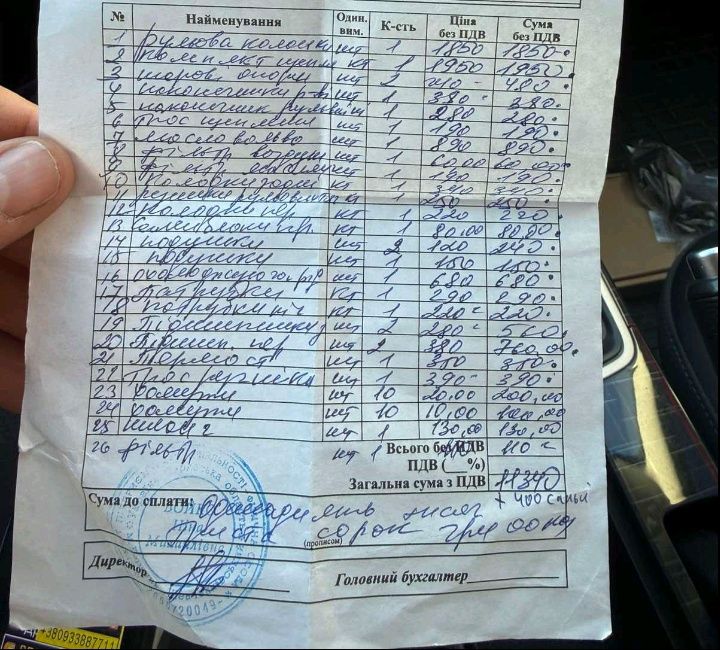 № Найменування Один. вим. К-сть Ціна без ПДВ Сума без ПДВ
1 рульова колонка шт 1 1850 1850
2 комплект щепл кт 1 1950 1950
3 шарові опори шт 2 240 480
4 наконечники р-т шт 1 380 380
5 наконечник рульвий шт 1 280 280
6 Трос щеплення шт 1 190 190
7 Масло вольво шт 1 890 890
8 Фільтр воздуш шт 1 60.00 60.00
9 Фільтр шт 1 190 190
10 Колодки задні кт 1 340 340
11 кт 1 250 250
12 Колодки пер кт 1 220 220
13 пр. кт 1 80.00 80.00
14 подушки шт 2 120 240
15 подушки шт 1 150 150
16 шт 1 680 680
17 Патрубки кт 1 290 290
18 патрубки кт 1 220 220
19 Підшипники шт 2 280 560
20 Підшип. пер шт 2 380 760,00
21 Термост шт 1 350 350
22 Трос ручніка шт 1 390 390
23 хомути шт 10 20,00 200,00
24 хомути шт 10 10,00 100,00
25 шланг шт 1 130,00 130,00
26 фільтр шт 1 110 110
Всього без ПДВ
ПДВ ( %)
Загальна сума з ПДВ 11340
+ 400
Сума до сплати: Одинадцять тисяч
триста сорок грн 00 коп
(прописом)
Директор Головний бухгалтер
+380933887711